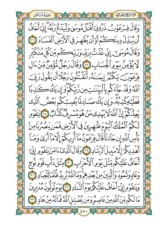 وَقَالَ فِرْعَوْنُ ذَرُونِي أَقْتُلْ مُوسَىٰ وَلْيَدْعُ رَبَّهُ إِنِّي أَخَافُ
أَن يُبَدِّلَ دِينَكُمْ أَوْ أَن يُظْهِرَ فِي الْأَرْضِ الْفَسَادَ
وَقَالَ مُوسَىٰ إِنِّي عُذْتُ بِرَبِّي وَرَبِّكُم مِّن كُلِّ مُتَكَبِّرٍ
لَّا يُؤْمِنُ بِيَوْمِ الْحِسَابِ وَقَالَ رَجُلٌ مُّؤْمِنٌ مِّنْ آلِ
فِرْعَوْنَ يَكْتُمُ إِيمَانَهُ أَتَقْتُلُونَ رَجُلًا أَن يَقُولَ رَبِّيَ
اللَّهُ وَقَدْ جَاءَكُم بِالْبَيِّنَاتِ مِن رَّبِّكُمْ وَإِن يَكُ كَاذِبًا
فَعَلَيْهِ كَذِبُهُ وَإِن يَكُ صَادِقًا يُصِبْكُم بَعْضُ الَّذِي
يَعِدُكُمْ إِنَّ اللَّهَ لَا يَهْدِي مَنْ هُوَ مُسْرِفٌ كَذَّابٌ
يَا قَوْمِ لَكُمُ الْمُلْكُ الْيَوْمَ ظَاهِرِينَ فِي الْأَرْضِ فَمَن يَنصُرُنَا مِن
بَأْسِ اللَّهِ إِن جَاءَنَا قَالَ فِرْعَوْنُ مَا أُرِيكُمْ إِلَّا مَا أَرَىٰ وَمَا
أَهْدِيكُمْ إِلَّا سَبِيلَ الرَّشَادِ وَقَالَ الَّذِي آمَنَ يَا قَوْمِ إِنِّي
أَخَافُ عَلَيْكُم مِّثْلَ يَوْمِ الْأَحْزَابِ مِثْلَ دَأْبِ قَوْمِ نُوحٍ
وَعَادٍ وَثَمُودَ وَالَّذِينَ مِن بَعْدِهِمْ وَمَا اللَّهُ يُرِيدُ ظُلْمًا لِّلْعِبَادِ
وَيَا قَوْمِ إِنِّي أَخَافُ عَلَيْكُمْ يَوْمَ التَّنَادِ يَوْمَ تُوَلُّونَ مُدْبِرِينَ
مَا لَكُم مِّنَ اللَّهِ مِنْ عَاصِمٍ وَمَن يُضْلِلِ اللَّهُ فَمَا لَهُ مِنْ هَادٍ
٤٧٠